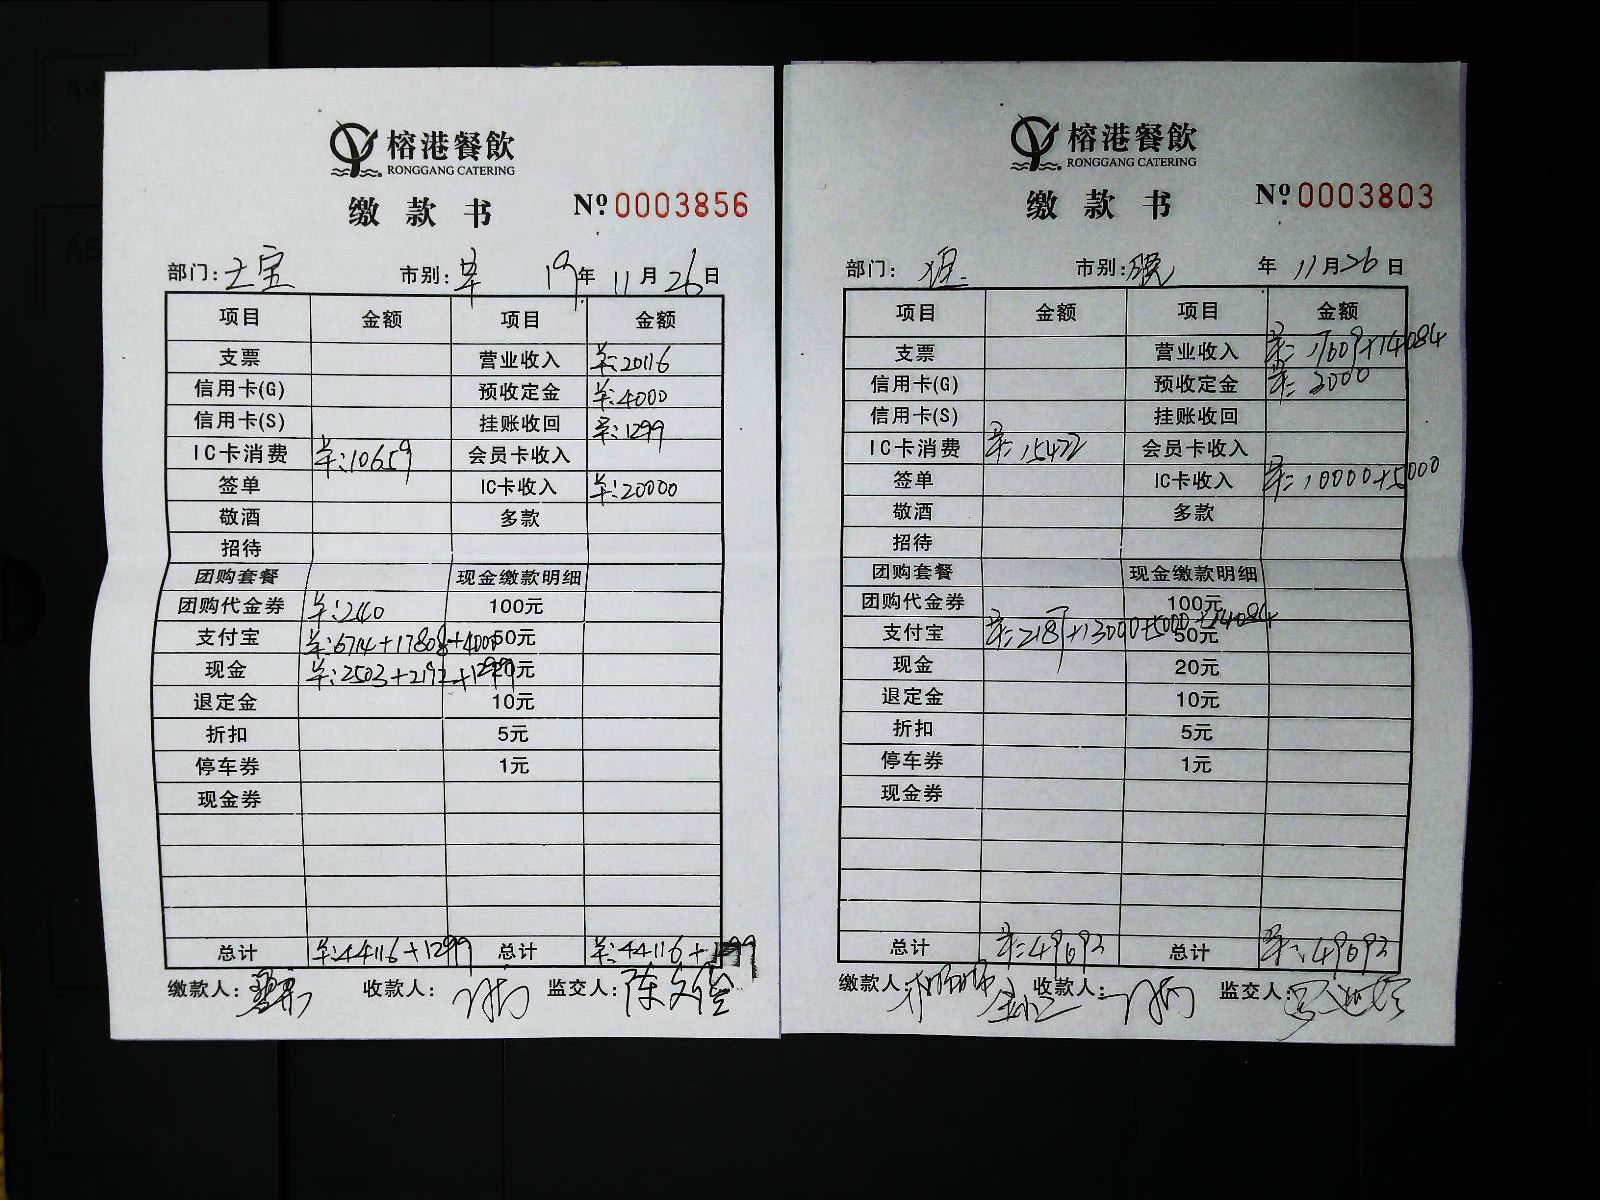 榕港餐飲
RONGGANG CATERING
缴款书
№ 0003856
部门: 市别: 19年 11月 26日
项目 金额 项目 金额
支票 营业收入 羊:20116
信用卡(G) 预收定金 羊:4000
信用卡(S) 挂账收回 羊:1299
IC卡消费 羊:10659 会员卡收入
签单 IC卡收入 羊:20000
敬酒 多款
招待
团购套餐 现金缴款明细
团购代金券 羊:240 100元
支付宝 羊:6714+17808+4000 50元
现金 羊:2503+2192+1299 20元
退定金 10元
折扣 5元
停车券 1元
现金券
总计 羊:44116+1299 总计 羊:44116+1299
缴款人: 收款人: 监交人:
榕港餐飲
RONGGANG CATERING
缴款书
№ 0003803
部门: 市别: 年 11月26日
项目 金额 项目 金额
支票 营业收入 +14084
信用卡(G) 预收定金 2000
信用卡(S) 挂账收回
IC卡消费 15422 会员卡收入
签单 IC卡收入 10000+5000
敬酒 多款
招待
团购套餐 现金缴款明细
团购代金券 100元
支付宝 +13000+5000+14084 50元
现金 20元
退定金 10元
折扣 5元
停车券 1元
现金券
总计 总计
缴款人: 收款人: 监交人: